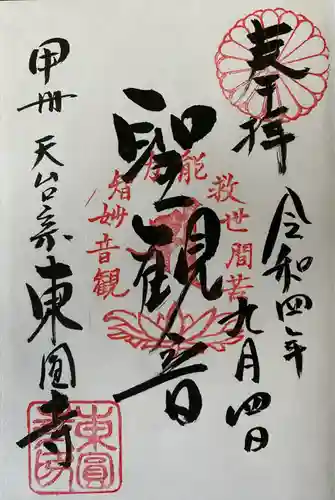 奉拝
令和四年
九月四日
聖観音
観音妙智
能
救世間苦
甲州 天台宗 東圓寺
東圓
寺印